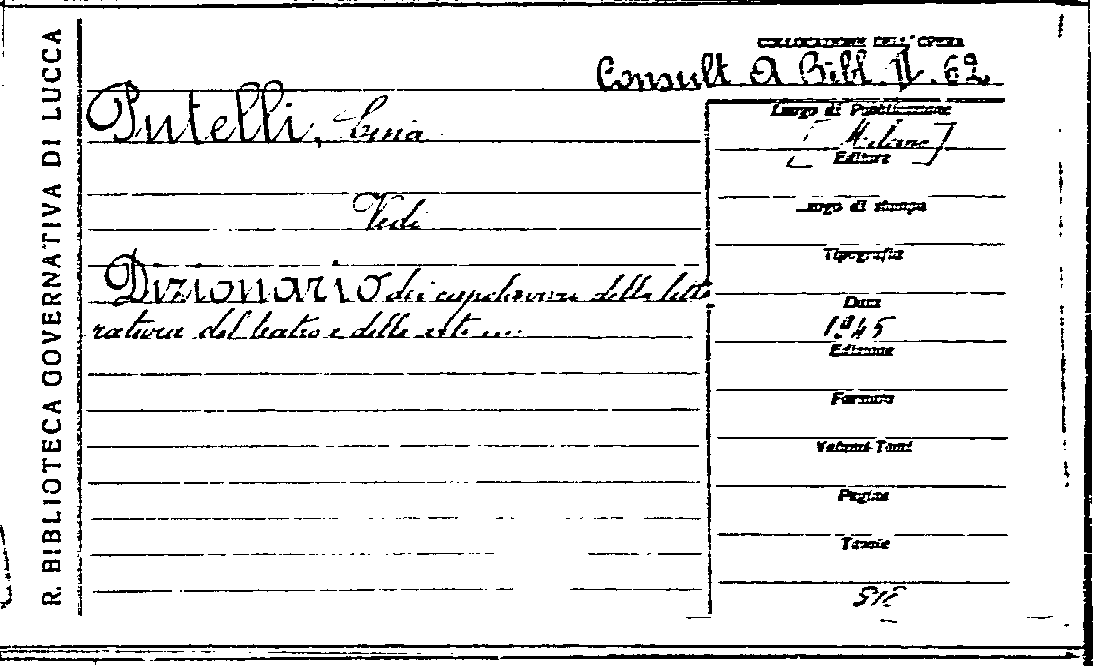 R. BIBLIOTECA GOVERNATIVA DI LUCCA
COLLOCAZIONE DELL'OPERA
Consult A Bibl. II. 62
Putelli,
Vedi
Dizionario dei capolavori della lette
ratura del teatro e delle arti ...
Luogo di Pubblicazione
[Milano]
Editore
Luogo di stampa
Tipografia
Data
1945
Edizione
Formato
Volumi-Tomi
Pagine
Tavole